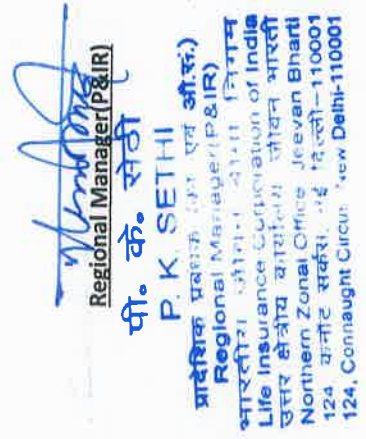 Regional Manager(P&IR)
पी. के. सेठी
P. K. SETHI
प्रादेशिक प्रबंधक एवं औ.सं.)
Regional Manager(P&IR)
भारतीय जीवन बीमा निगम
Life Insurance Corporation of India
उत्तर क्षेत्रीय कार्यालय जीवन भारती
Northern Zonal Office Jeevan Bharti
124 कनॉट सर्कस नई दिल्ली-110001
124, Connaught Circus New Delhi-110001